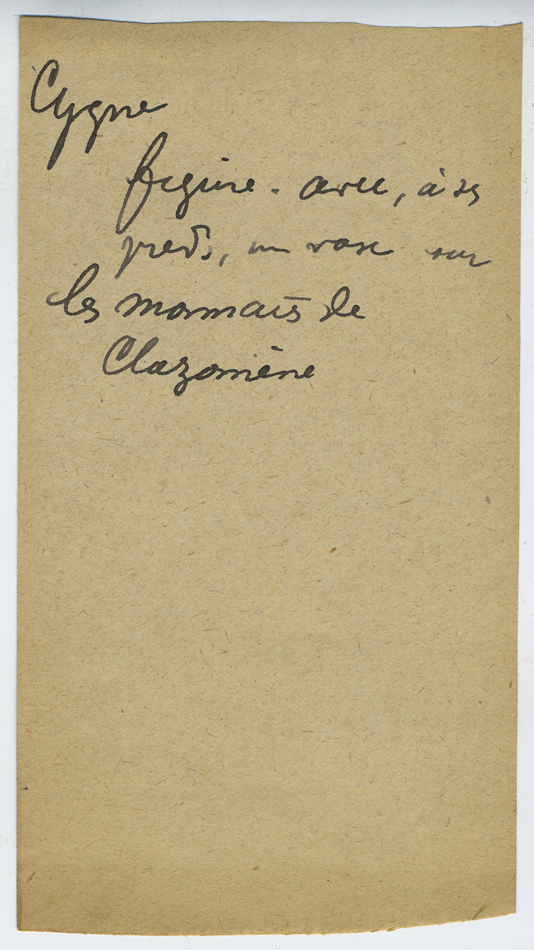 Cygne
figure. avec, à ses
pieds, un vase sur
les monnaies de
Clazomène